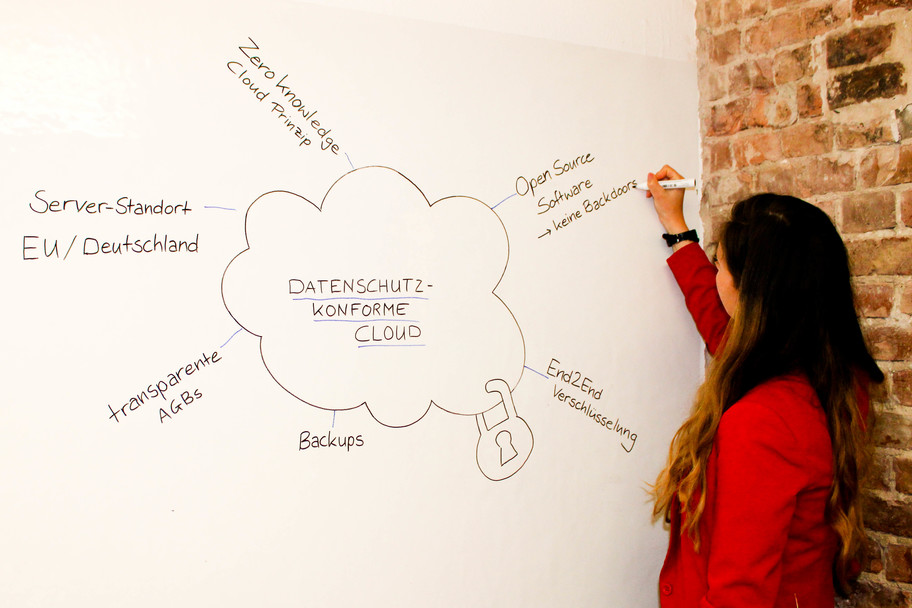 Zero Knowledge
Cloud Prinzip
Open Source
Software
→ keine Backdoors
Server-Standort
EU/Deutschland
DATENSCHUTZ-
KONFORME
CLOUD
transparente
AGBs
End2End
Verschlüsselung
Backups